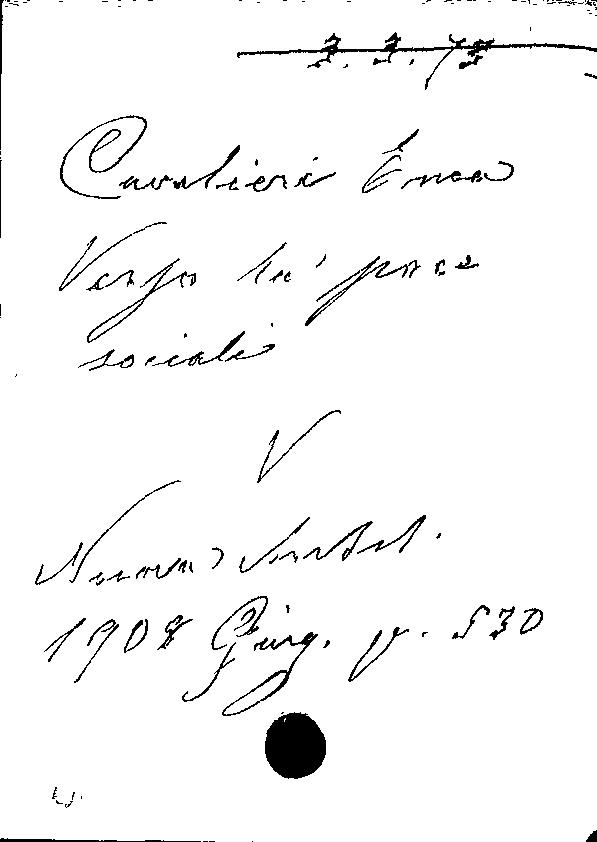 3. 3. 75
Cavalieri Enea
Verso la pace
sociale
V
Nuova Antol.
1908 Giug. p. 530